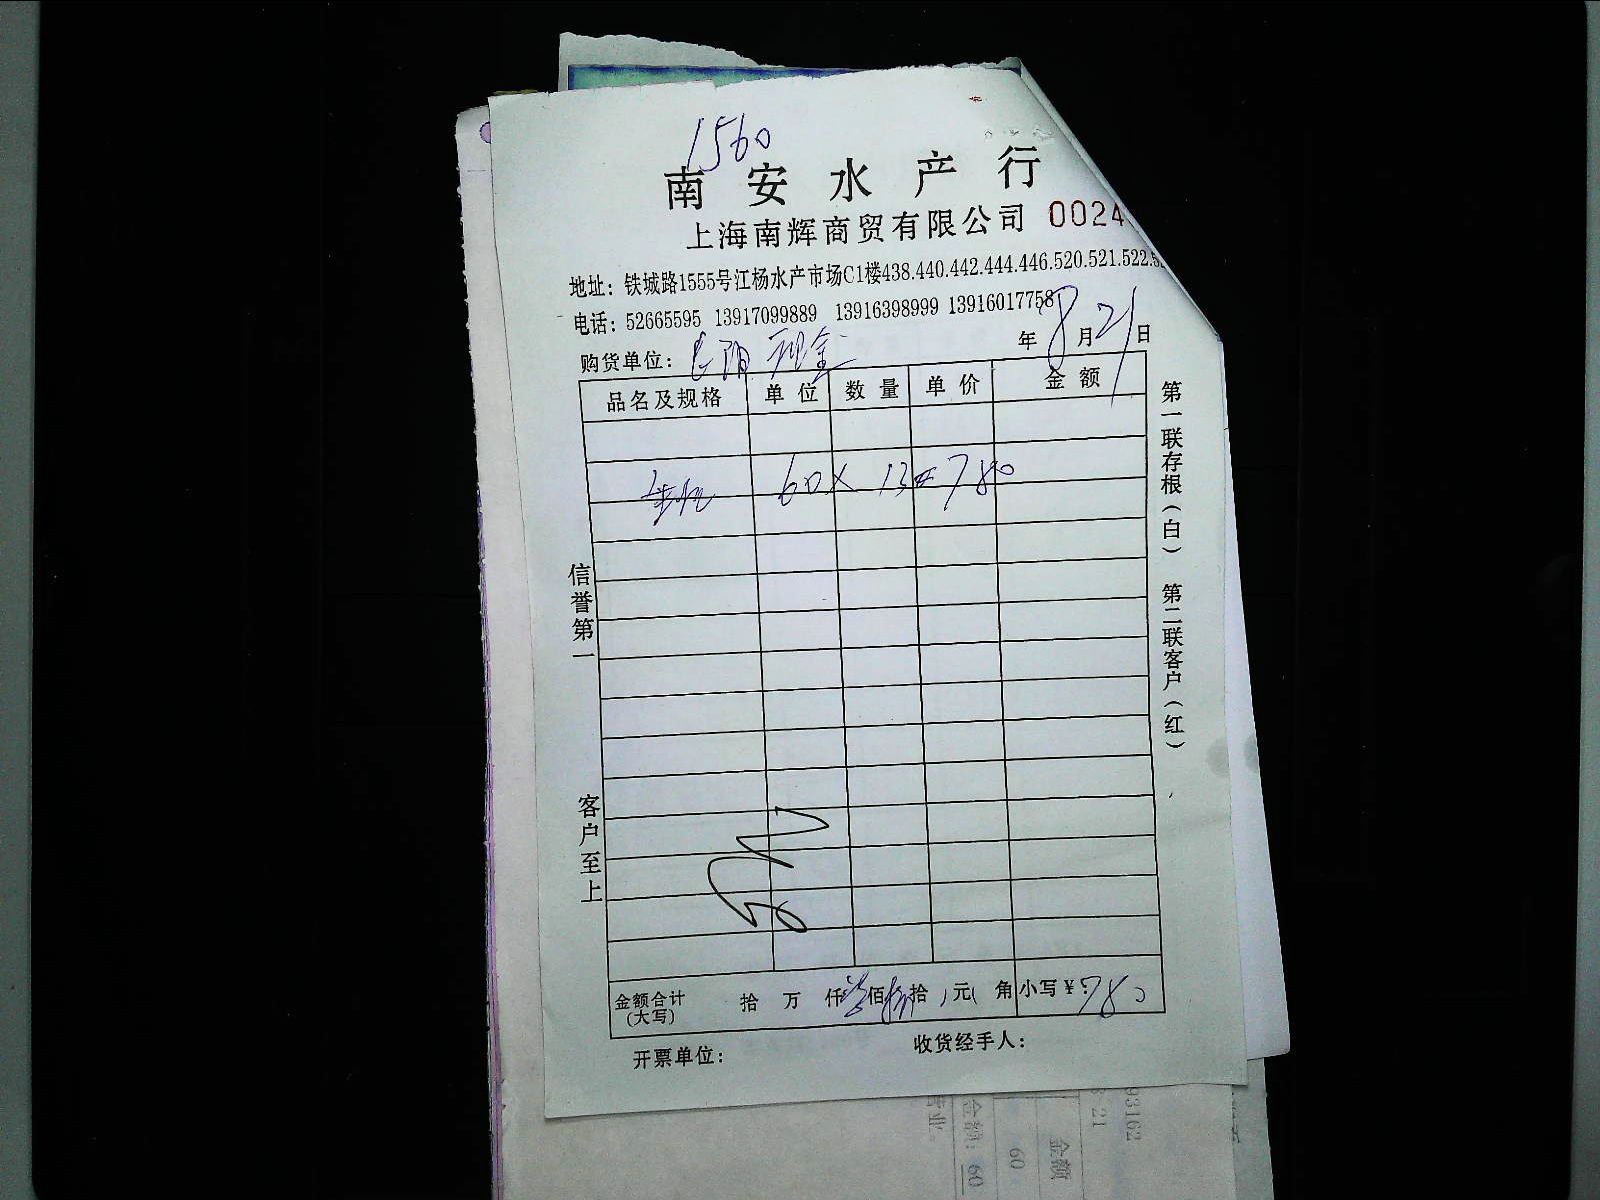 1560
南安水产行
上海南辉商贸有限公司 0024
地址：铁城路1555号江杨水产市场C1楼438.440.442.444.446.520.521.522.5
电话：52665595 13917099889 13916398999 13916017758
年8月21日
购货单位： 现金
品名及规格 单位 数量 单价 金额
60× 13=780
信誉第一
客户至上
第一联存根（白） 第二联客户（红）
金额合计（大写） 拾 万 仟 佰 拾 元 角 小写￥：780
开票单位： 收货经手人：
93162
8 21
金额
60
金额：60